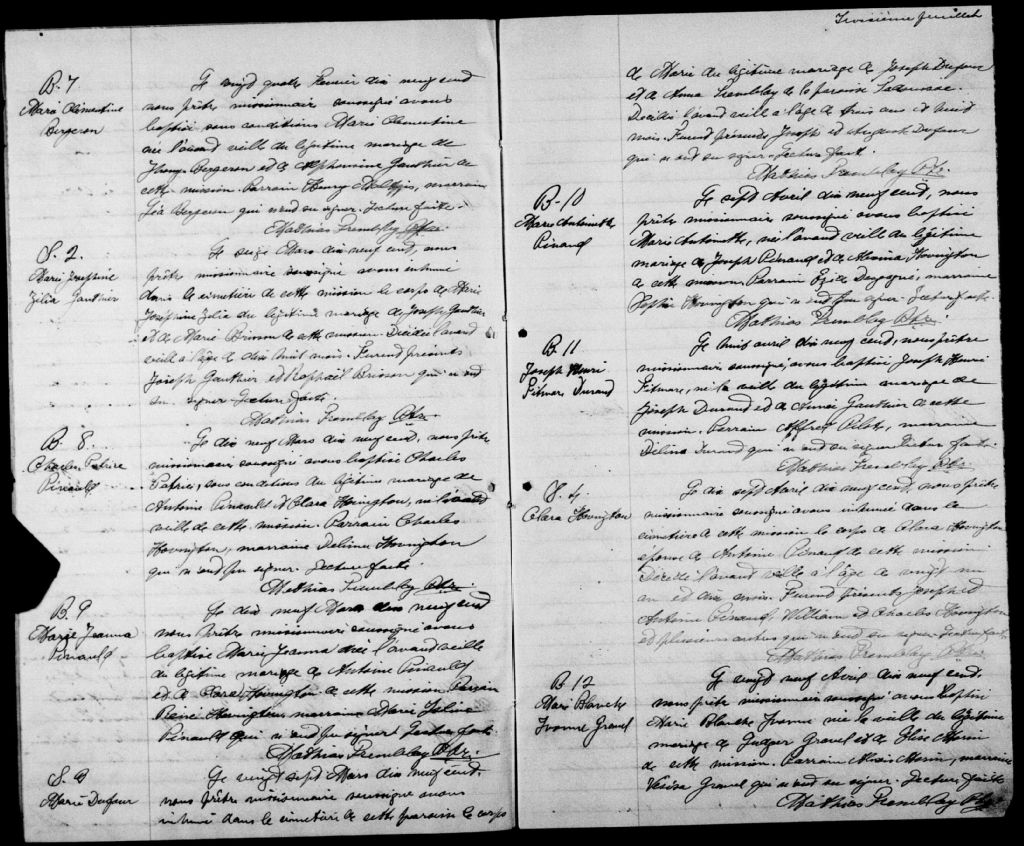 Troisième feuillet
B. 7
Marie Clémentine
Bergeron
Le vingt quatre Fevrier dix neuf cent
nous prêtre missionnaire soussigné avons
baptisé sous conditions Marie Clementine
née l'avant veille du légitime mariage de
Bergeron et de Alphonsine Gauthier de
cette mission. Parrain Henry marraine
Bergeron qui n'ont su signer. Lecture faite.
Mathias Tremblay Ptr.
S. 2.
Marie Josephine
Zélia Gauthier
Le seize Mars dix neuf cent, nous
prêtre missionnaire soussigné avons inhumé
dans le cimetière de cette mission le corps de Marie
Josephine Zelia du légitime mariage de Joseph Gauthier
et de Marie Brisson de cette mission. Décédée l'avant
veille à l'âge de dix huit mois. Furent présents
Joseph Gauthier et Raphaël Brisson qui n'ont
su signer Lecture faite.
Mathias Tremblay Ptr.
B. 8.
Charles Patrice
Pinault
Le dix neuf Mars dix neuf cent, nous prêtre
missionnaire soussigné avons baptisé Charles
Patrice, sous conditions du légitime mariage de
Antoine Pinault & Clara Hovington, né l'avant
veille de cette mission. Parrain Charles
Hovington, marraine Delima Hovington
qui n'ont pu signer. Lecture faite.
Mathias Tremblay Ptr.
B. 9
Marie Jeanne
Pinault
Le dix neuf Mars dix neuf cent
nous prêtre missionnaire soussigné avons
baptisé Marie Jeanna née l'avant veille
du légitime mariage de Antoine Pinault
et de Clara Hovington de cette mission Parrain
René Hovington marraine Marie Julie
Pinault qui n'ont pu signer Lecture faite.
Mathias Tremblay Ptr.
S. 3
Marie Dufour
Le vingt sept Mars dix neuf cent.
nous prêtre missionnaire soussigné avons
inhumé dans le cimetière de cette paroisse le corps
de Marie du légitime mariage de Joseph Dufour
et de Anna Tremblay de la paroisse Tadoussac.
Décédée l'avant veille à l'âge de trois ans et huit
mois. Furent présents, Joseph et August Dufour
qui n'ont su signer Lecture faite.
Mathias Tremblay Ptr.
B-10
Marie Antoinette
Pinault
Le sept Avril dix neuf cent, nous
prêtre missionnaire soussigné avons baptisé
Marie Antoinette, née l'avant veille du légitime
mariage de Joseph Pinault et de Hovington
de cette mission Parrain marraine
Hovington qui n'ont pu signer. Lecture faite.
Mathias Tremblay Ptr.
B. 11
Joseph Henri
Durand
Le huit avril dix neuf cent, nous prêtre
missionnaire soussigné, avons baptisé Joseph Henri
né la veille du légitime mariage de
Joseph Durand et de Gauthier de cette
mission. Parrain Alfred marraine
Delina Durand qui n'ont su signer Lecture faite.
Mathias Tremblay Ptr.
S. 4.
Clara Hovington
Le dix sept Avril dix neuf cent, nous prêtre
missionnaire soussigné avons inhumé dans le
cimetière de cette mission le corps de Clara Hovington
épouse de Antoine Pinault de cette mission
Décédée l'avant veille à l'âge de vingt un
an et dix mois. Furent présents, Joseph et
Antoine Pinault, William et Charles Hovington
et plusieurs autres qui n'ont su signer. Lecture faite.
Mathias Tremblay Ptr.
B 12
Marie Blanche
Yvonne Gravel
Le vingt neuf Avril dix neuf cent.
nous prêtre missionnaire soussigné avons baptisé
Marie Blanche Yvonne née la veille du légitime
mariage de Gravel et de Elise
de cette mission. Parrain marraine
Gravel qui n'ont su signer. Lecture faite
Mathias Tremblay Ptr.